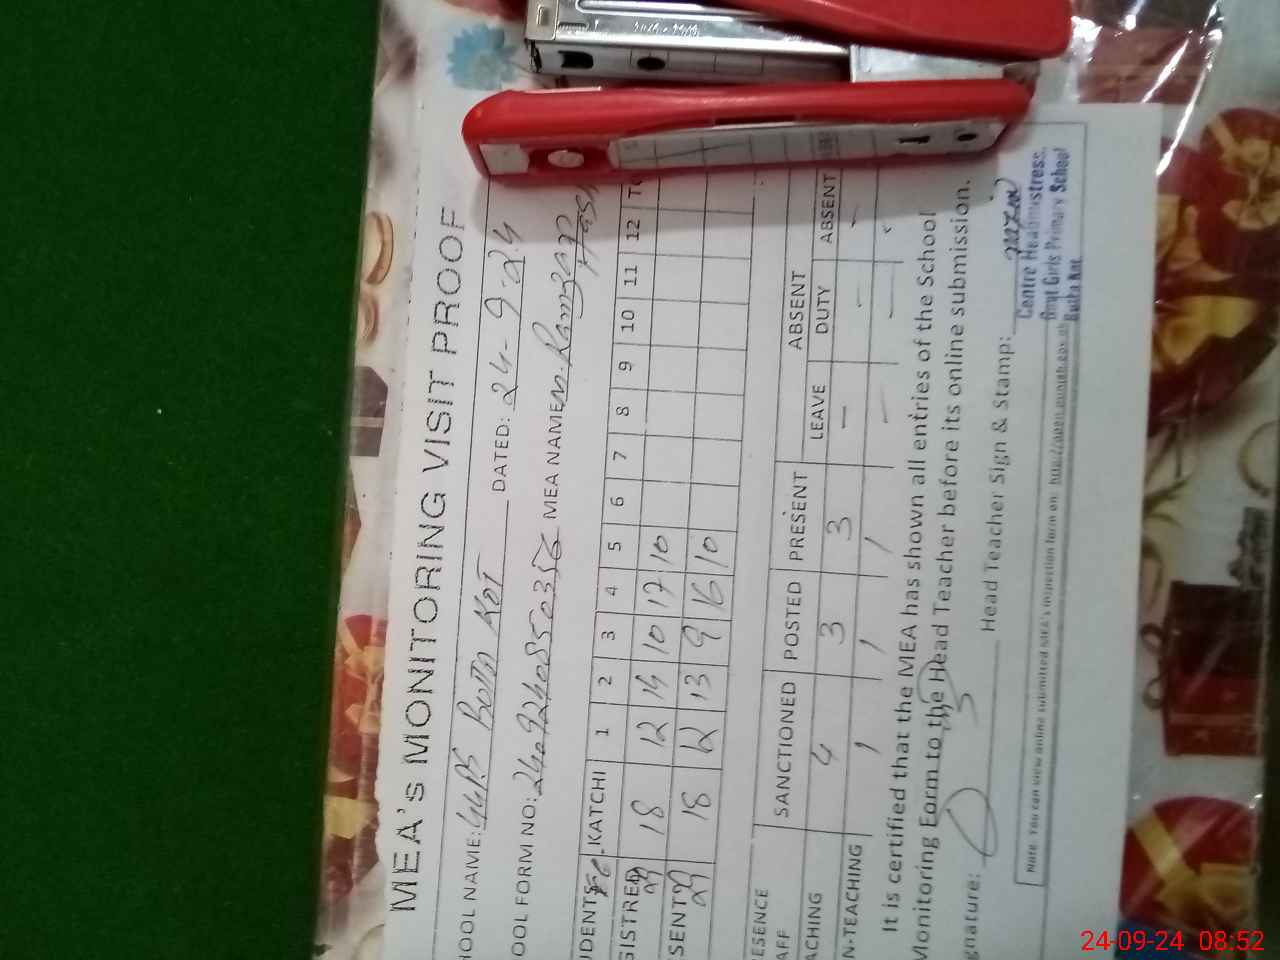 MEA's MONITORING VISIT PROOF
HOOL NAME: GGPS Botta Kot DATED: 24-9-24
OOL FORM NO: MEA NAME: M. Ramzan
UDENTS KATCHI 1 2 3 4 5 6 7 8 9 10 11 12
GISTRED 29 18 12 14 10 17 10
SENT 29 18 12 13 9 16 10
ESENCE SANCTIONED POSTED PRESENT ABSENT
AFF LEAVE DUTY ABSENT
ACHING 4 3 3 - - -
N-TEACHING 1 1 1 - - -
It is certified that the MEA has shown all entries of the School
Monitoring Form to the Head Teacher before its online submission.
gnature: Head Teacher Sign & Stamp:
Centre Headmistress
Govt Girls Primary School
Butta Kot
Note. You can view online submitted MEA's inspection form on:
24-09-24 08:52